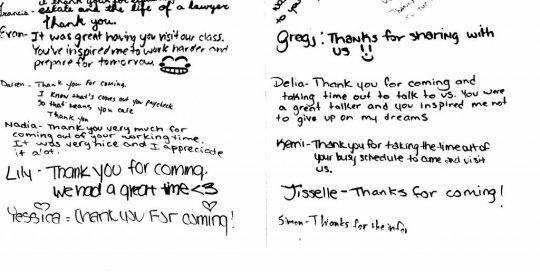 Francis- I thank you for
estate and the life of a lawyer
Thank you.
Evan- It was great having you visit our class.
You've inspired me to work harder and
prepare for tomorrow.
Darren - Thank you for coming.
I know that's comes out you paycheck
So that means you care
Thank you
Nadia- Thank you very much for
coming out of your working time.
It was very nice and I appreciate
it alot.
Lily - Thank you for coming.
we had a great time <3
Yessica = Thank you For coming!
Gregg: Thanks for sharing with
us !!
Delia- Thank you for coming and
taking time out to talk to us. You were
a great talker and you inspired me not
to give up on my dreams
Kerri-Thank you for taking the time out of
your busy schedule to come and visit
us.
Jisselle- Thanks for coming!
Simon- Thanks for the infor